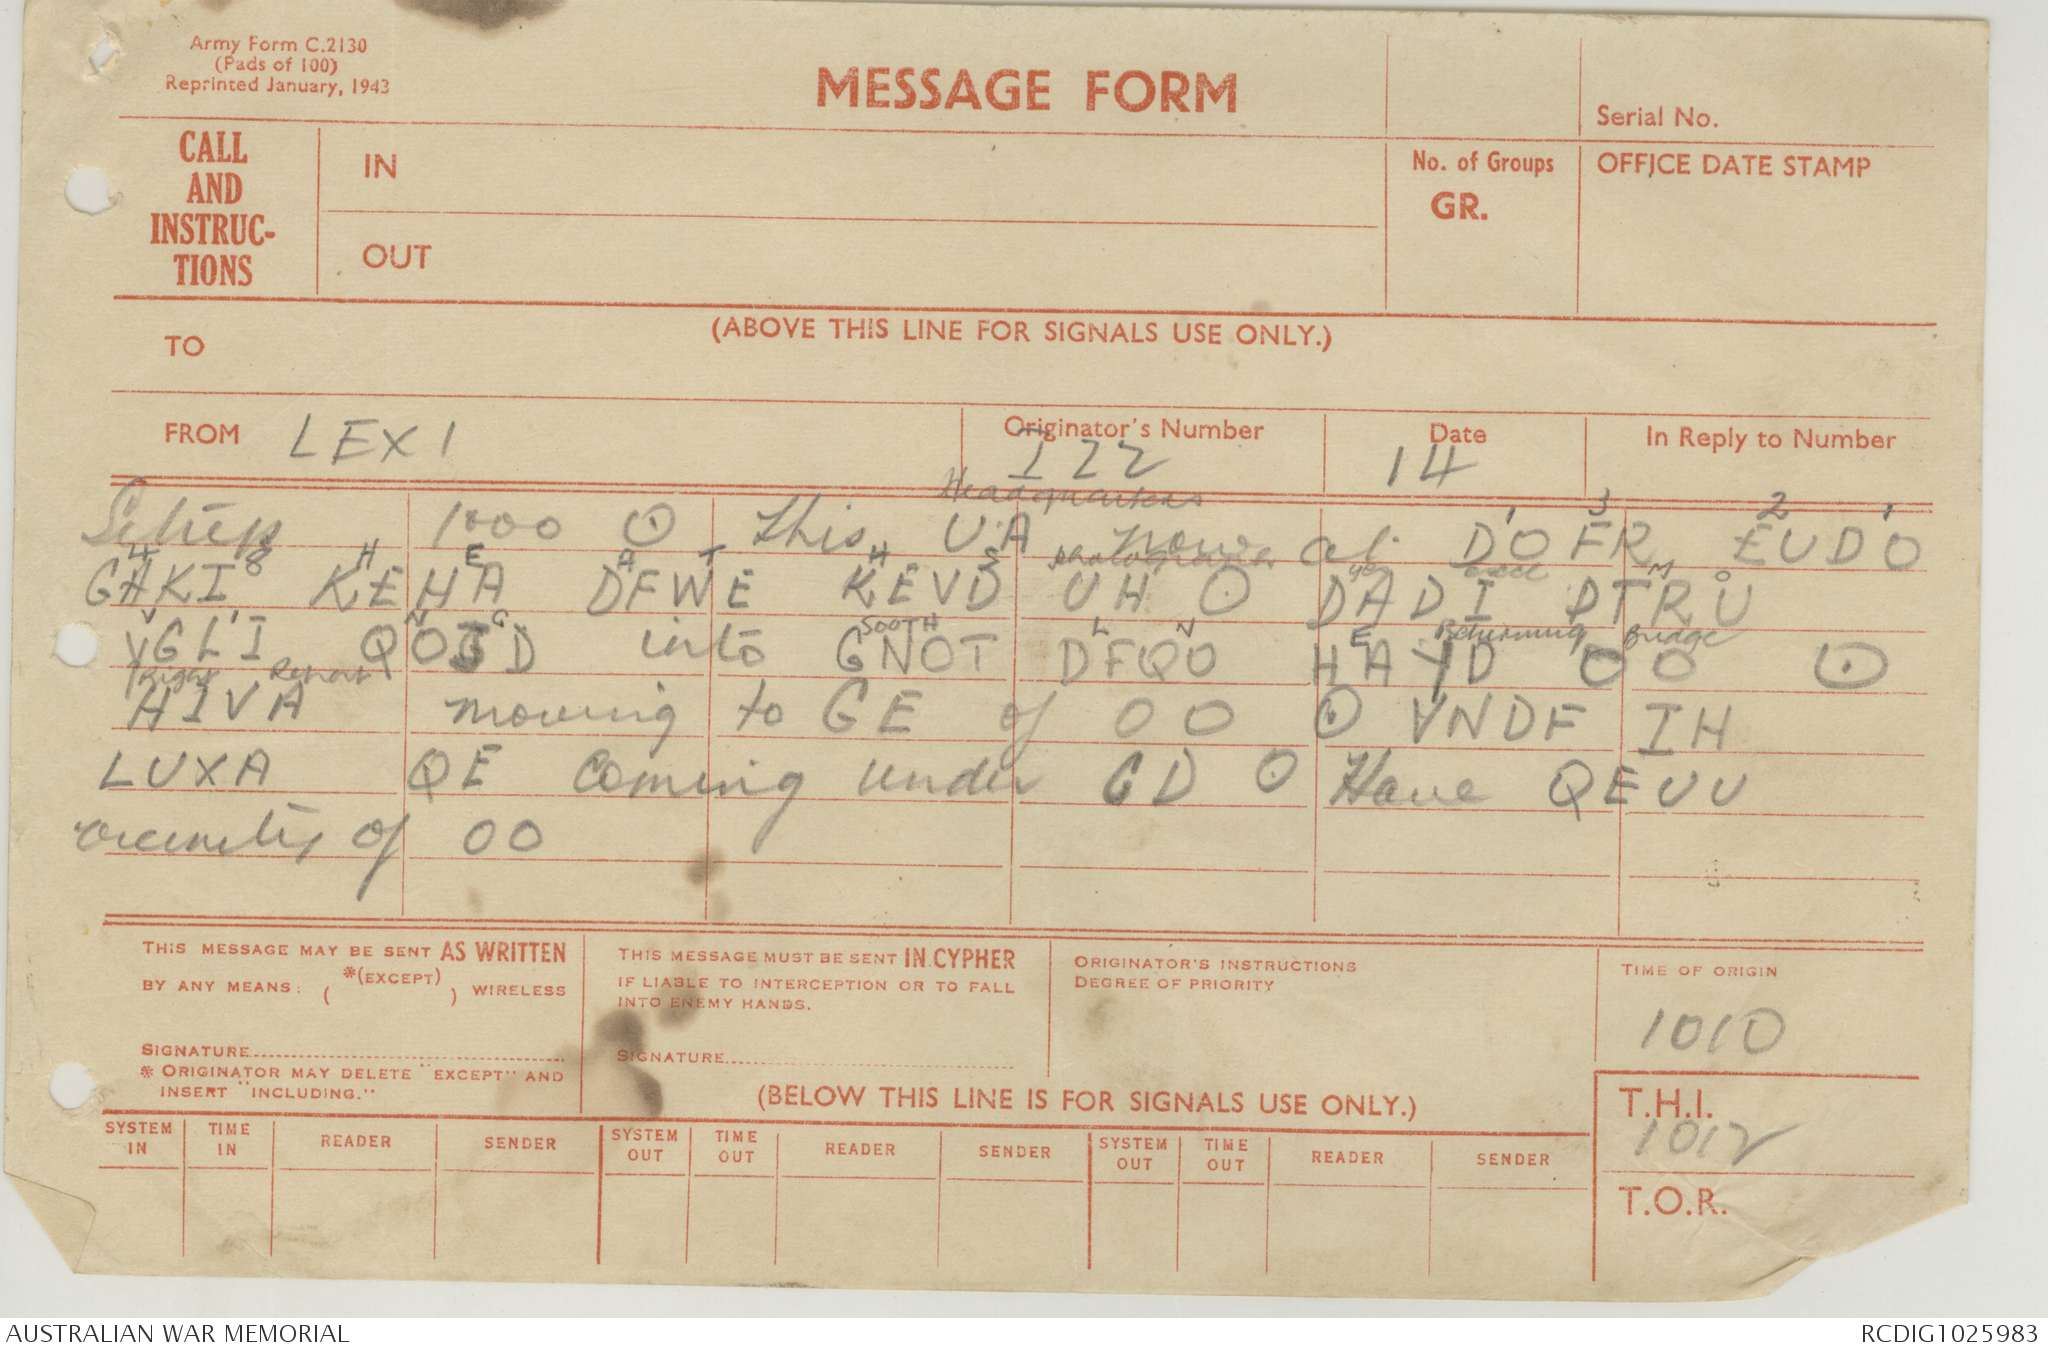 Army Form C.2130
(Pads of 100)
Reprinted January, 1943
MESSAGE FORM
Serial No.
CALL
AND
INSTRUC-
TIONS
IN
OUT
No. of Groups
GR.
OFFICE DATE STAMP
(ABOVE THIS LINE FOR SIGNALS USE ONLY.)
TO
FROM LEX 1
Originator's Number
I 22
Date
14
In Reply to Number
Headquarters
1 3 2 1
Sitrep 1000 ⊙ This UA now at DOFR EUDO
4 8 H E A T H S
GHKI KEHA DFWE KEVD UH ⊙ DADI DTRU
V I N G SOOTH L N E Returning Bridge
VGLI QOJD into GNOT DFQO HAYD OO ⊙
Right
HIVA moving to GE of OO ⊙ VNDF IH
LUXA QE coming under GD ⊙ Have QEUU
vicinity of OO
THIS MESSAGE MAY BE SENT AS WRITTEN
BY ANY MEANS: ( *(EXCEPT) ) WIRELESS
SIGNATURE
* ORIGINATOR MAY DELETE "EXCEPT" AND
INSERT "INCLUDING."
THIS MESSAGE MUST BE SENT IN CYPHER
IF LIABLE TO INTERCEPTION OR TO FALL
INTO ENEMY HANDS.
SIGNATURE
ORIGINATOR'S INSTRUCTIONS
DEGREE OF PRIORITY
TIME OF ORIGIN
1010
(BELOW THIS LINE IS FOR SIGNALS USE ONLY.)
T.H.I.
1012
T.O.R.
SYSTEM IN TIME IN READER SENDER SYSTEM OUT TIME OUT READER SENDER SYSTEM OUT TIME OUT READER SENDER
AUSTRALIAN WAR MEMORIAL
RCDIG1025983